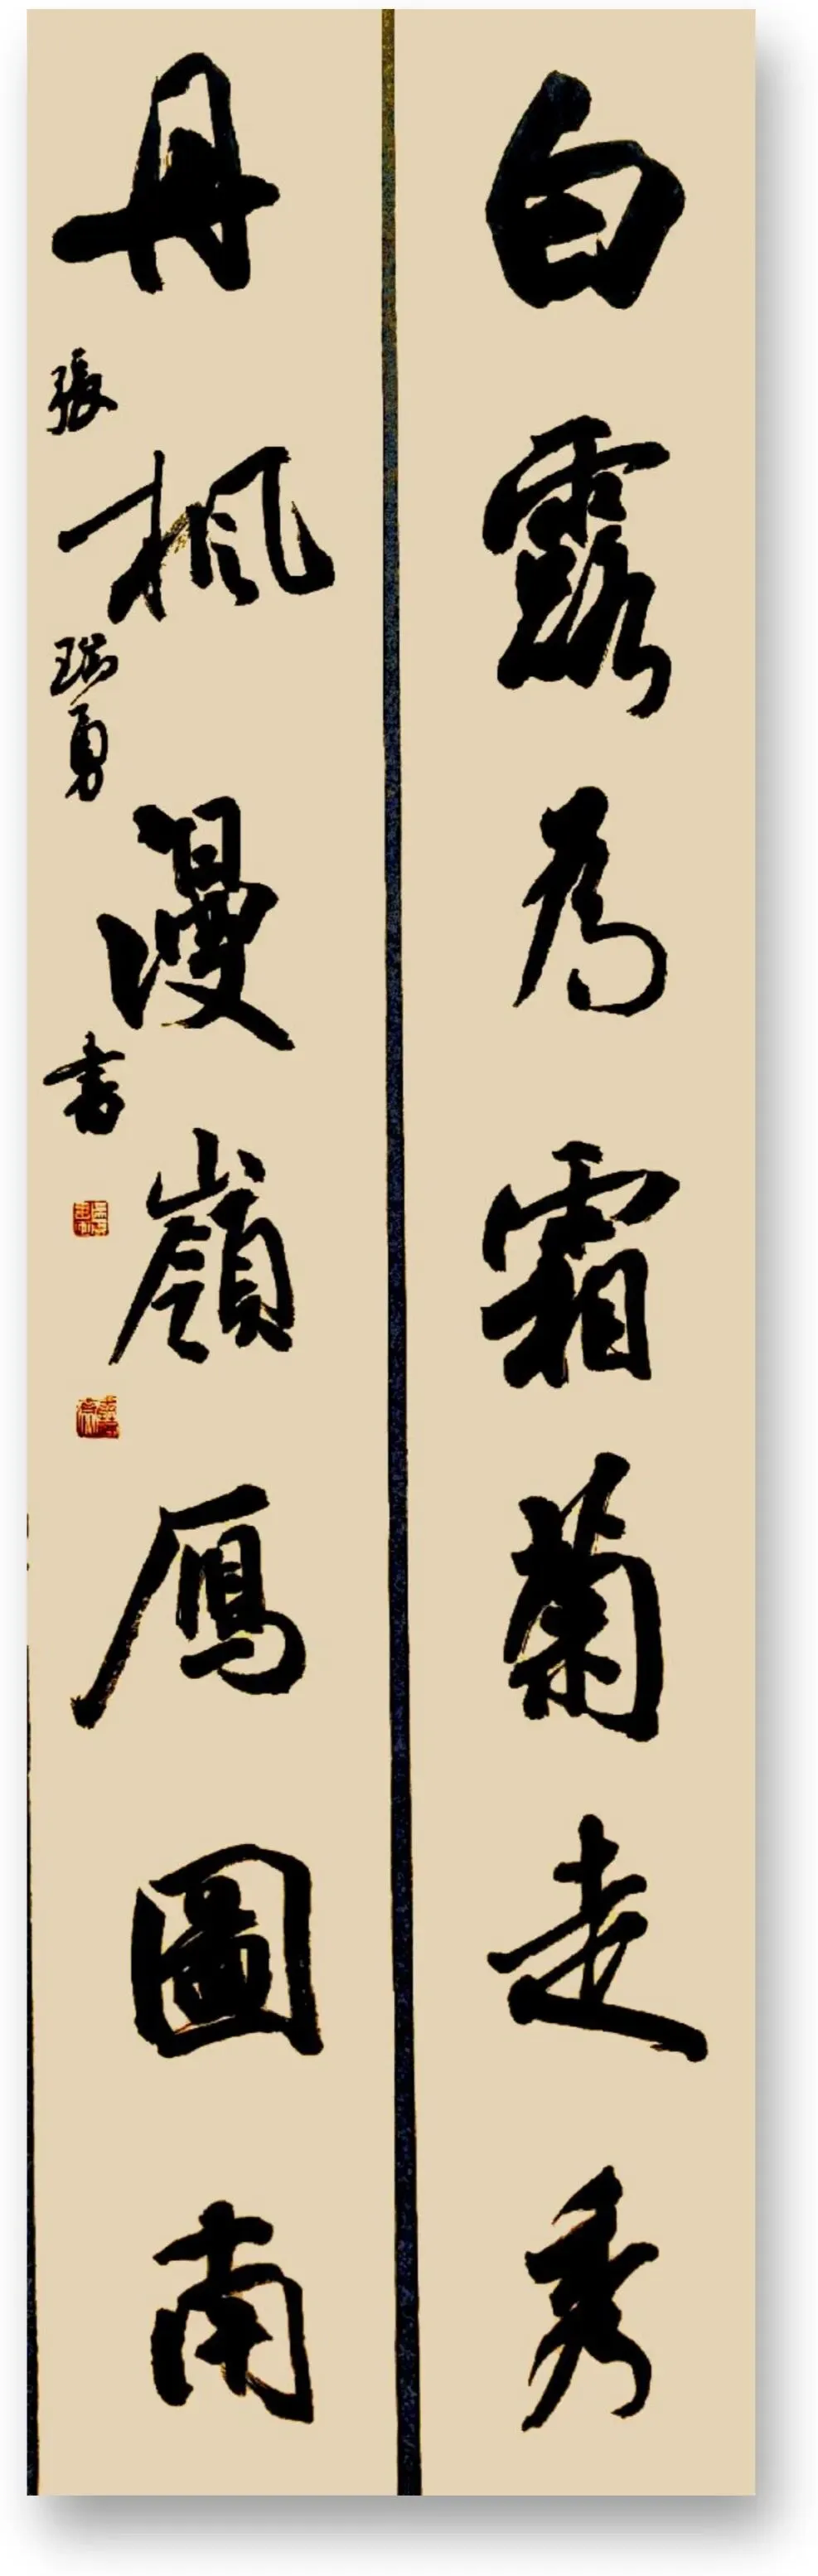 白露為霜菊走秀
丹楓漫嶺鴈圖南
張瑞勇書